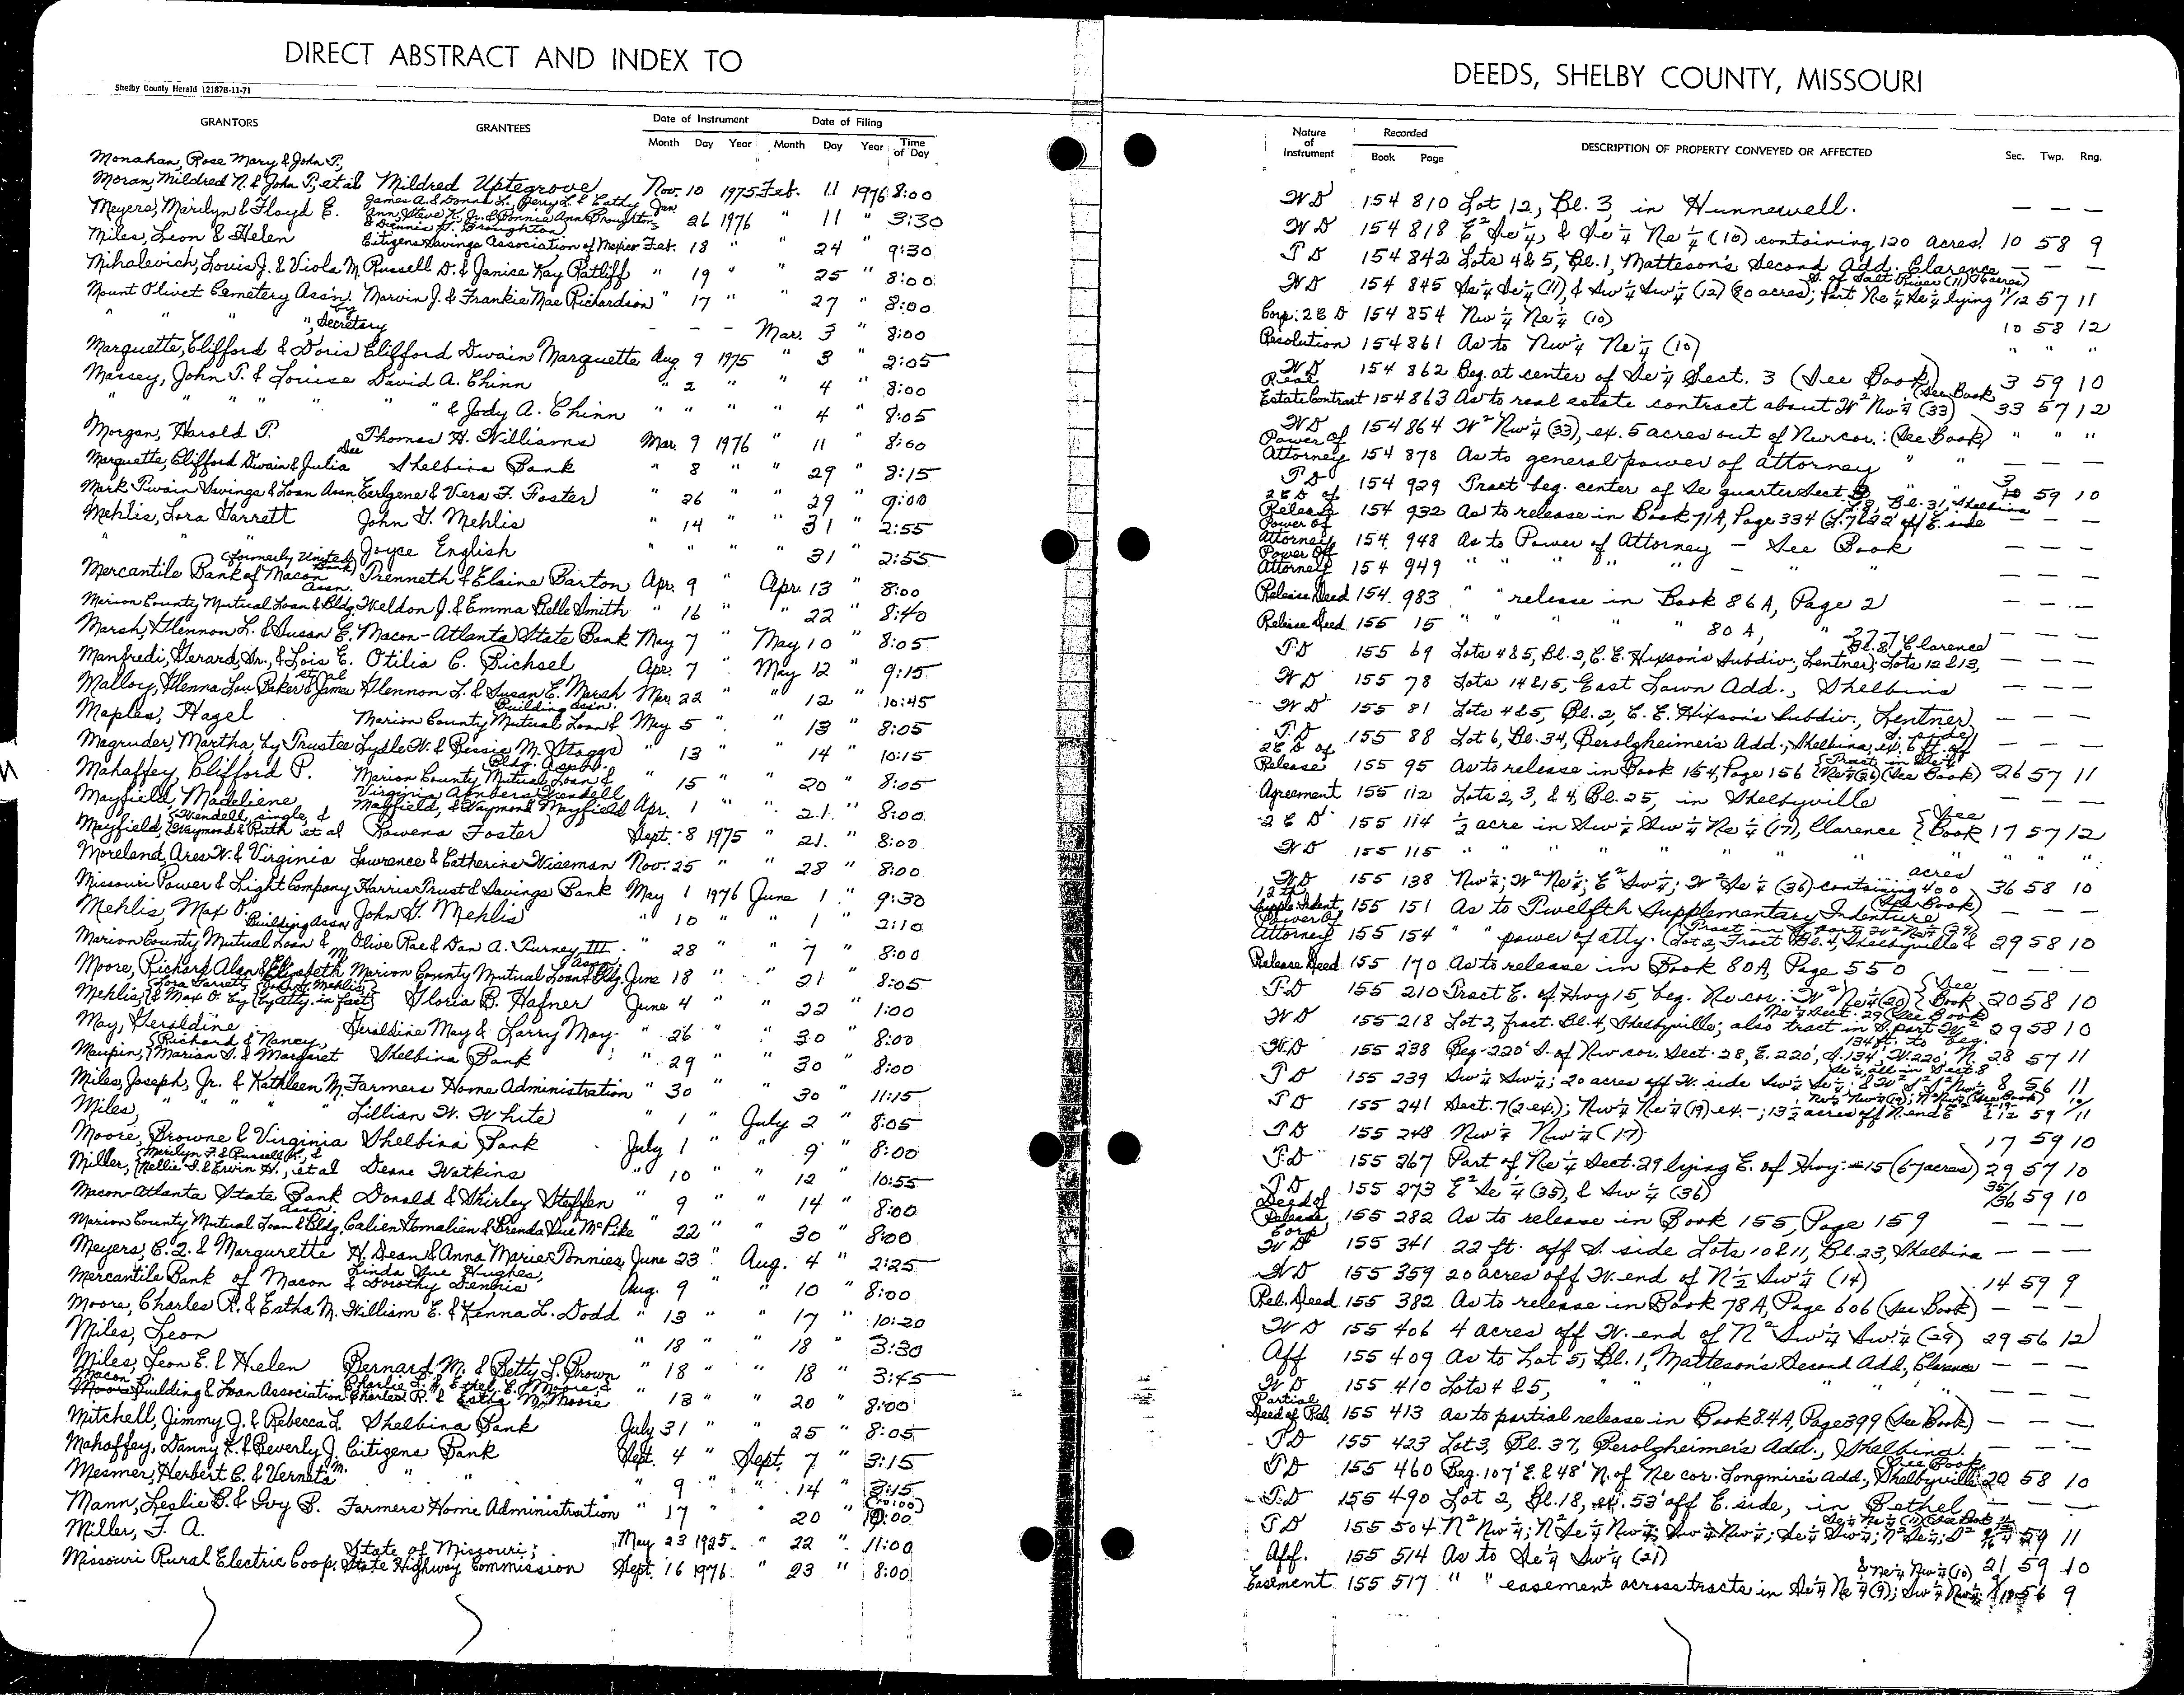 DIRECT ABSTRACT AND INDEX TO
Shelby County Herald 12187B-11-71
GRANTORS GRANTEES Date of Instrument Date of Filing
Month Day Year Month Day Year Time of Day
Monahan, Rose Mary & John T.,
Moran, Mildred N. & John P., et al Mildred Uptegrove Nov. 10 1975 Feb. 11 1976 8:00
Meyers, Marilyn & Floyd E. James A. & Donna L., Jerry L. & Cathy Ann, Steve K., Jr. & Connie Ann Broughton, & Dennis G. Broughton Jan. 26 1976 " 11 " 3:30
Miles, Leon & Helen Citizens Savings Association of Mexico Feb. 18 " " 24 " 9:30
Mihalevich, Louis J. & Viola M. Russell D. & Janice Kay Ratliff " 19 " " 25 " 8:00
Mount Olivet Cemetery Ass'n. Marvin J. & Frankie Mae Richardson " 17 " " 27 " 8:00
" " " by ", Secretary - - - Mar. 3 " 8:00
Marquette, Clifford & Doris Clifford Dwain Marquette Aug. 9 1975 " 3 " 2:05
Massey, John T. & Louise David A. Chinn " 2 " " 4 " 8:00
" " " " " & Jody A. Chinn " " " " 4 " 8:05
Morgan, Harold T. Thomas H. Williams Mar. 9 1976 " 11 " 8:00
Marquette, Clifford Dwain & Julia Dee Shelbina Bank " 8 " " 29 " 8:15
Mark Twain Savings & Loan Assn. Earlgene & Vera F. Foster " 26 " " 29 " 9:00
Mehlis, Lora Garrett John G. Mehlis " 14 " " 31 " 2:55
" " " Joyce English " " " " 31 " 2:55
Mercantile Bank of Macon (formerly United Bank) Trenneth & Elaine Barton Apr. 9 " Apr. 13 " 8:00
Marion County Mutual Loan & Bldg. Assn. Weldon J. & Emma Belle Smith " 16 " " 22 " 8:40
Marsh, Glennon L. & Susan E. Macon-Atlanta State Bank May 7 " May 10 " 8:05
Manfredi, Gerard, Sr., & Lois E. Otilia C. Richsel Apr. 7 " May 12 " 9:15
Malloy, Glenna Lou Baker & James et al Glennon L. & Susan E. Marsh Mar. 22 " " 12 " 10:45
Maples, Hazel Marion County Mutual Loan & Building Ass'n. May 5 " " 13 " 8:05
Magruder, Martha, by Trustee Lysle W. & Bessie M. Staggs " 13 " " 14 " 10:15
Mahaffey, Clifford P. Marion County Mutual Loan & Bldg. Assn. " 15 " " 20 " 8:05
Mayfield, Madeliene Virginia Wendell Mayfield, & Waymond Mayfield Apr. 1 " " 21. " 8:00
Mayfield, {Wendell, single, & Waymond & Ruth et al Rowena Foster Sept. 8 1975 " 21. " 8:00
Moreland, Ares W. & Virginia Lawrence & Catherine Wiseman Nov. 25 " " 28 " 8:00
Missouri Power & Light Company Harris Trust & Savings Bank May 1 1976 June 1 " 9:30
Mehlis, Max O. John G. Mehlis " 10 " " 1 " 2:10
Marion County Mutual Loan & Building Assn. Olive Rae & Dan A. Turney III " 28 " " 7 " 8:00
Moore, Richard Alan & Elizabeth M. Marion County Mutual Loan & Bldg. Assn. June 18 " " 21 " 8:05
Mehlis, {Lora Garrett & Max O. by {John G. Mehlis by atty. in fact} Gloria B. Hafner June 4 " " 22 " 1:00
May, Geraldine Geraldine May & Larry May " 26 " " 30 " 8:00
Maupin, {Richard & Nancy, Marion S. & Margaret Shelbina Bank " 29 " " 30 " 8:00
Miles, Joseph, Jr. & Kathleen M. Farmers Home Administration " 30 " " 30 " 11:15
Miles, " " " " Lillian W. White " 1 " July 2 " 8:05
Moore, Browne & Virginia Shelbina Bank July 1 " " 9 " 8:00
Miller, {Marilyn F. & Russell K., & Nellie S. & Ervin H., et al Deane Watkins " 10 " " 12 " 10:55
Macon-Atlanta State Bank Donald & Shirley Steffen " 9 " " 14 " 8:00
Marion County Mutual Loan & Bldg. Assn. Calien & Brenda Sue McPike " 22 " " 30 " 8:00
Meyers, C. Z. & Margurette H. Dean & Anna Marie Tonnies June 23 " Aug. 4 " 2:25
Mercantile Bank of Macon Linda Sue Hughes, & Dorothy Dennis Aug. 9 " " 10 " 8:00
Moore, Charles R. & Estha M. William E. & Kenna L. Dodd " 13 " " 17 " 10:20
Miles, Leon " 18 " " 18 " 3:30
Miles, Leon E. & Helen Bernard M. & Betty L. Brown " 18 " " 18 " 3:45
Macon Building & Loan Association Charlie L. & Ethel E. Moore, & Charles R. & Estha M. Moore " 13 " " 20 " 8:00
Mitchell, Jimmy J. & Rebecca L. Shelbina Bank July 31 " " 25 " 8:05
Mahaffey, Danny K. & Beverly J. Citizens Bank Sept. 4 " Sept. 7 " 3:15
Mesmer, Herbert C. & Verneta M. " " " 9 " " 14 " 3:15
Mann, Leslie B. & Ivy B. Farmers Home Administration " 17 " " 20 " (10:00)
Miller, F. A. May 23 1925 " 22 " 11:00
Missouri Rural Electric Coop. State of Missouri; State Highway Commission Sept. 16 1976 " 23 " 8:00
DEEDS, SHELBY COUNTY, MISSOURI
Nature of Instrument Recorded DESCRIPTION OF PROPERTY CONVEYED OR AFFECTED Sec. Twp. Rng.
Book Page
WD 154 810 Lot 12, Bl. 3, in Hunnewell. — — —
WD 154 818 E² Se¼, & Se¼ Ne¼ (10) containing 120 acres. 10 58 9
TD 154 842 Lots 4 & 5, Bl. 1, Matteson's Second Add. Clarence — — —
WD 154 845 Se¼ Se¼ (11), & Sw¼ Sw¼ (12) (80 acres); Part Ne¼ Se¼ lying S. of Salt River (11) 11/12 57 11
Corp. 2CD 154 854 Nw¼ Ne¼ (10) 10 58 12
Resolution 154 861 As to Nw¼ Ne¼ (10) " " "
WD 154 862 Beg. at center of Se¼ Sect. 3 (See Book) 3 59 10
Real Estate Contract 154 863 As to real estate contract about W² Nw¼ (33) (See Book) 33 57 12
WD 154 864 W² Nw¼ (33), ex. 5 acres out of Nw cor.: (See Book) " " "
Power of Attorney 154 878 As to general power of attorney — — —
TD 154 929 Tract beg. center of Se quarter Sect. 3 59 10
2CD of Release 154 932 As to release in Book 71A, Page 334 (L. 7 & 22' off E. side L. 8, Bl. 31, Shelbina — — —
Power of Attorney 154 948 As to Power of Attorney — See Book — — —
Power Of Attorney 154 949 " " " " — " " — — —
Release Deed 154 983 " " release in Book 86A, Page 2 — — —
Release Deed 155 15 " " " " " 80A, " 277 — — —
TD 155 69 Lots 4 & 5, Bl. 2, C. E. Hixson's Subdiv., Lentner; Lots 12 & 13, Bl. 8, Clarence — — —
WD 155 78 Lots 14 & 15, East Lawn Add., Shelbina — — —
WD 155 81 Lots 4 & 5, Bl. 2, C. E. Hixson's Subdiv., Lentner — — —
TD 155 88 Lot 6, Bl. 34, Berolzheimer's Add., Shelbina, ex. 6 ft. off S. side — — —
2CD of Release 155 95 As to release in Book 154, Page 156 {Tract in Se¼ Ne¼ (26) (See Book) 26 57 11
Agreement 155 112 Lots 2, 3, & 4, Bl. 25, in Shelbyville — — —
2CD 155 114 ½ acre in Sw¼ Sw¼ Ne¼ (17), Clarence {See Book 17 57 12
WD 155 115 " " " " " " " " "
WD 155 138 Nw¼; W² Ne¼; E² Sw¼; W² Se¼ (36) containing 400 acres 36 58 10
12th Supple. Indent. 155 151 As to Twelfth Supplementary Indenture (See Book) — — —
Power Of Attorney 155 154 " " power of atty. (Lot 2, Fract. Bl. 4, Shelbyville & Tract in S. part W² Ne¼ 29 58 10
Release Deed 155 170 As to release in Book 80A, Page 550 — — —
TD 155 210 Tract E. of Hwy 15, beg. Ne cor. W² Ne¼ (20) {See Book 20 58 10
WD 155 218 Lot 2, Fract. Bl. 4, Shelbyville; also tract in S. part W² Ne¼ Sect. 29 (See Book) 29 58 10
WD 155 238 Beg. 220' S. of Nw cor. Sect. 28, E. 220', S. 134', W. 220', N. 134 ft. to beg. 28 57 11
TD 155 239 Sw¼ Sw¼; 20 acres off W. side Sw¼ Se¼; & W² S² S² Nw¼ Se¼, all in Sect. 8 8 56 11
TD 155 241 Sect. 7 (2 ex.); Nw¼ Ne¼ (19) ex.—; 13½ acres off N. end E² Nw¼ Nw¼ (19); (See Book) 59 11
TD 155 248 Nw¼ Nw¼ (17) 17 59 10
TD 155 267 Part of Ne¼ Sect. 29 lying E. of Hwy. #15 (67 acres) 29 57 10
TD 155 273 E² Se¼ (35), & Sw¼ (36) 35/36 59 10
Deed of Release 155 282 As to release in Book 155, Page 159 — — —
Corp WD 155 341 22 ft. off S. side Lots 10 & 11, Bl. 23, Shelbina — — —
WD 155 359 20 acres off W. end of N½ Sw¼ (14) 14 59 9
Rel. Deed 155 382 As to release in Book 78A, Page 606 (See Book) — — —
WD 155 406 4 acres off W. end of N² Sw¼ Sw¼ (29) 29 56 12
Aff 155 409 As to Lot 5, Bl. 1, Matteson's Second Add., Clarence — — —
WD 155 410 Lots 4 & 5, " " " " " — — —
Partial Deed of Rel. 155 413 As to partial release in Book 84A, Page 399 (See Book) — — —
TD 155 423 Lot 3, Bl. 37, Berolzheimer's Add., Shelbina — — —
TD 155 460 Beg. 107' E. & 48' N. of Ne cor. Longmire's Add., Shelbyville (See Book) 20 58 10
TD 155 490 Lot 2, Bl. 18, ex. 53' off E. side, in Bethel — — —
TD 155 504 N² Nw¼; N² Se¼ Nw¼; Sw¼ Nw¼; Se¼ Sw¼; N² Se¼; S² Se¼ Ne¼ (11) (See Book) 59 11
Aff. 155 514 As to Se¼ Sw¼ (21) 21 59 10
Easement 155 517 " " easement across tracts in Se¼ Ne¼ (9); Sw¼ Nw¼ & Ne¼ Nw¼ (10) 56 9